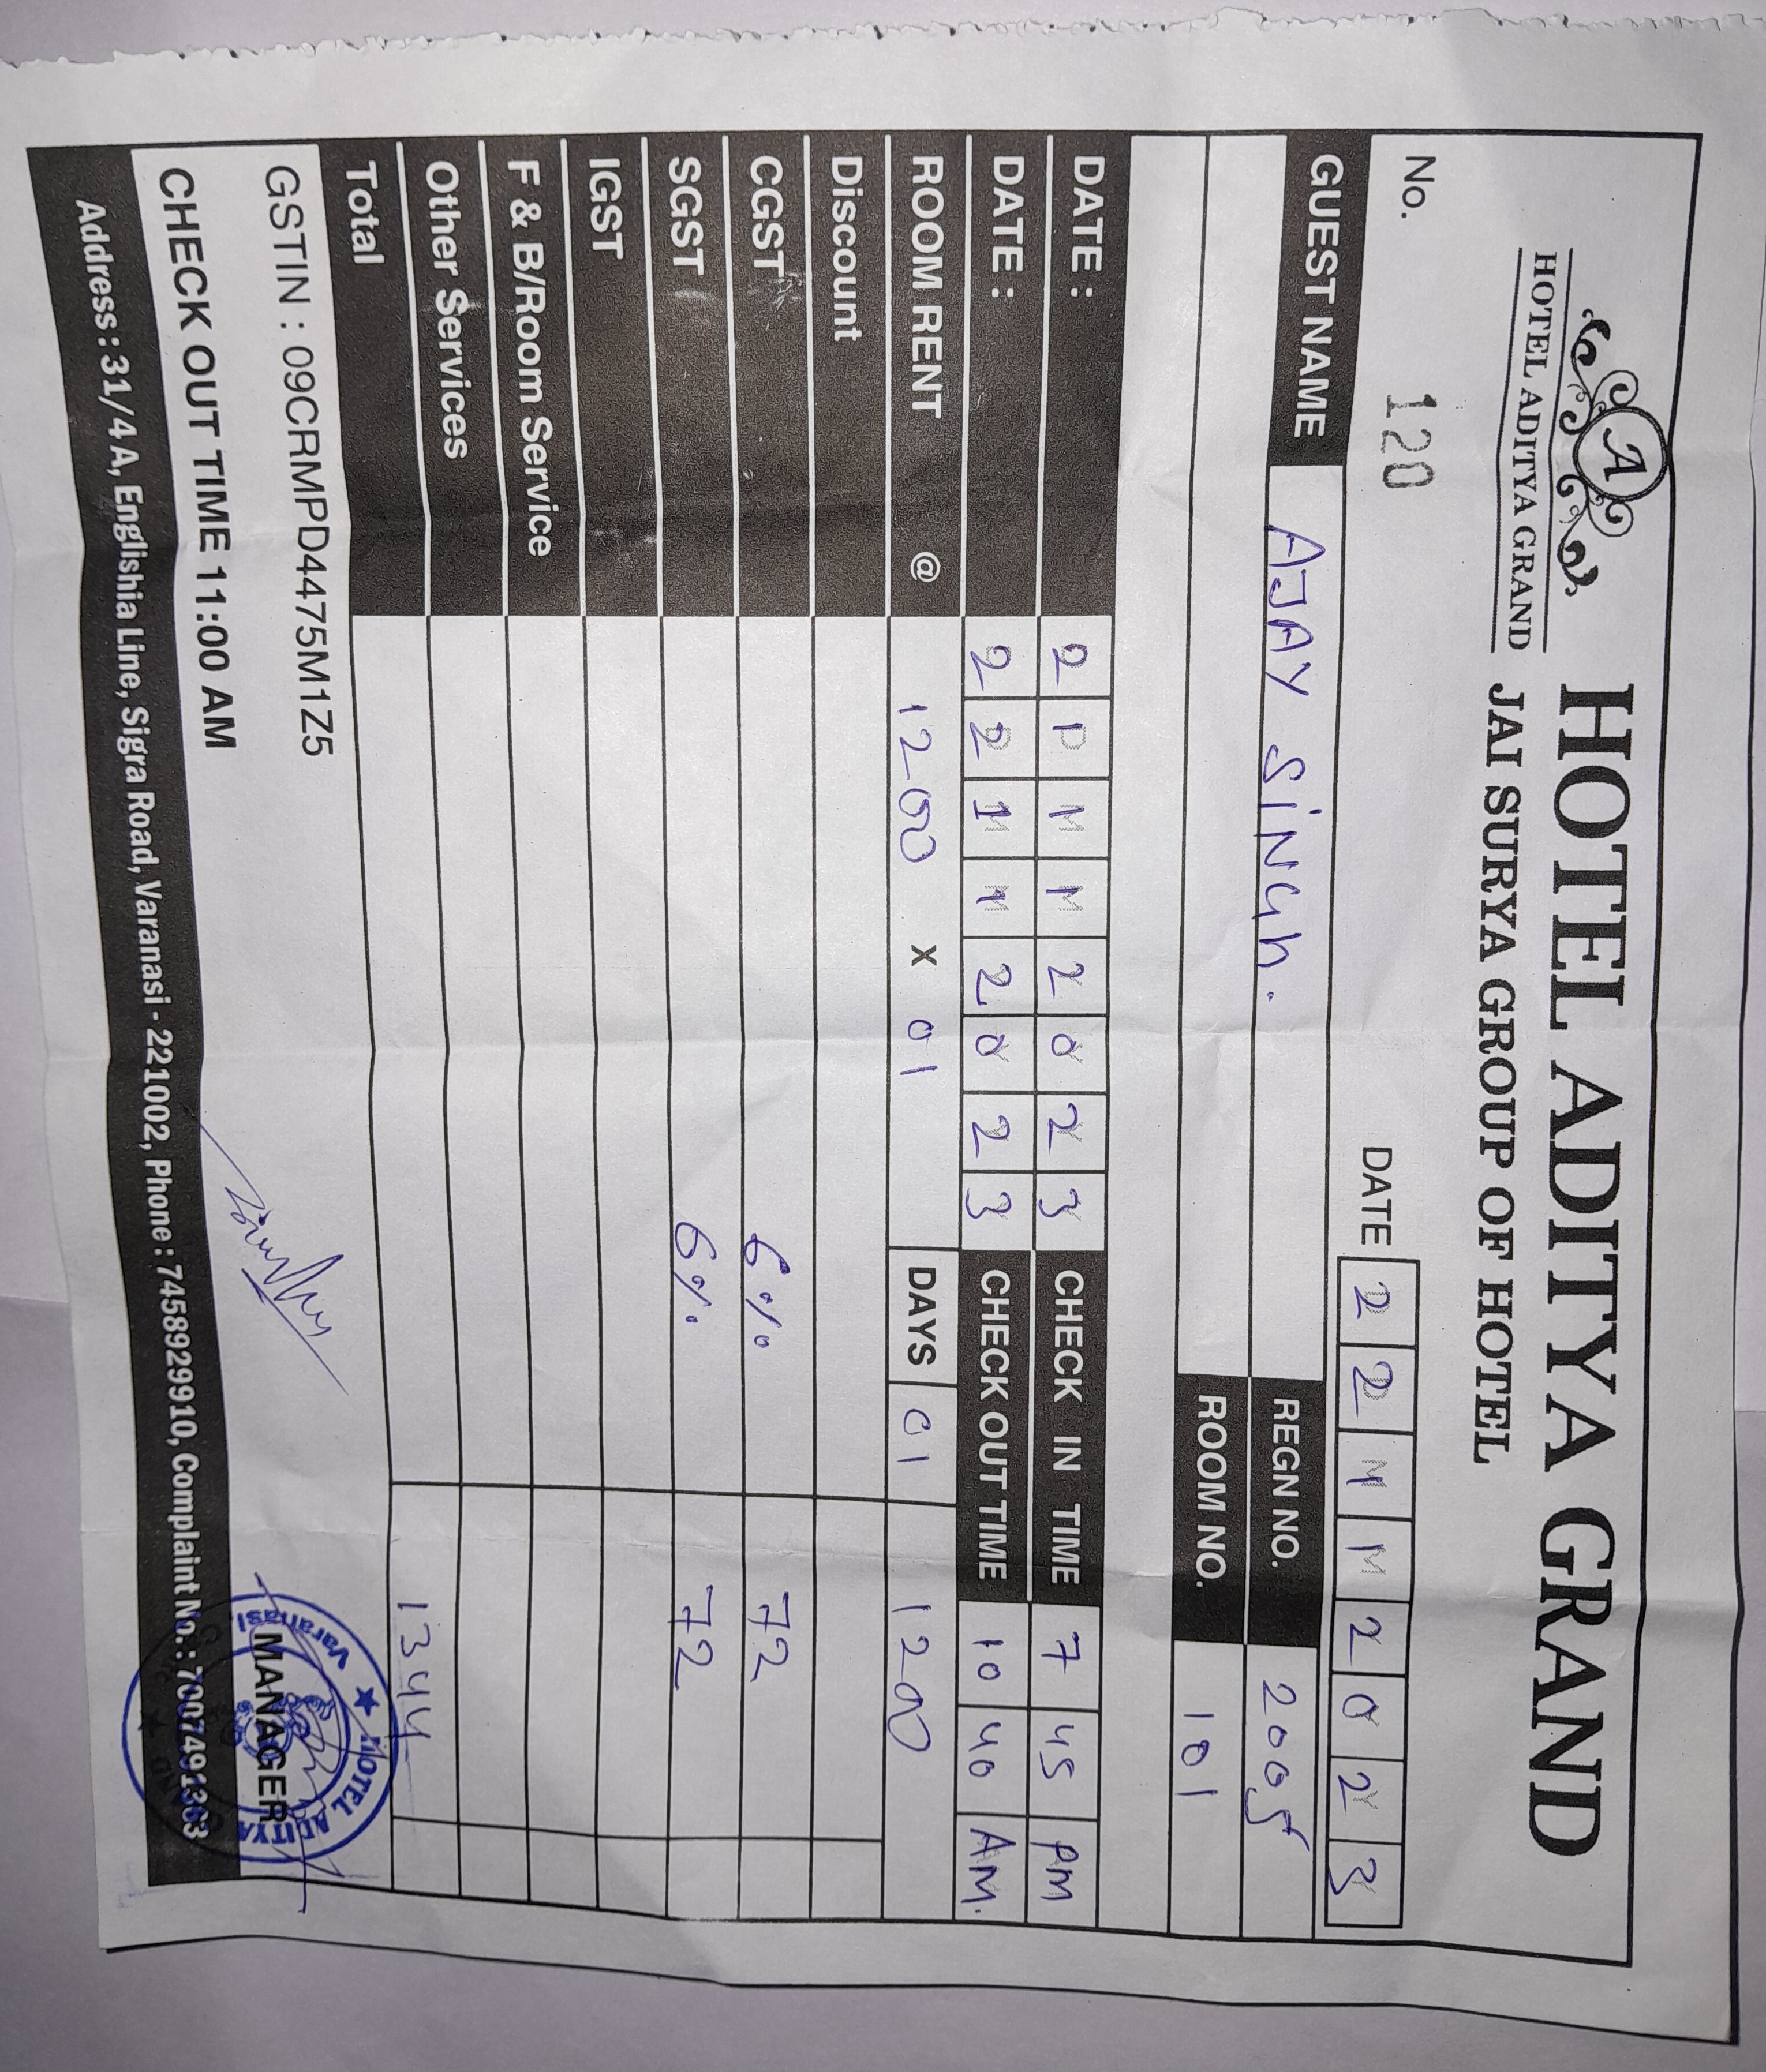 HOTEL ADITYA GRAND
A
HOTEL ADITYA GRAND
JAI SURYA GROUP OF HOTEL
No. 120 DATE 2 2 1 1 2 0 2 3
GUEST NAME AJAY SINGH.
REGN NO. 2005
ROOM NO. 101
DATE : 2 1 1 1 2 0 2 3 CHECK IN TIME 7 45 PM
DATE : 2 2 1 1 2 0 2 3 CHECK OUT TIME 10 40 AM.
ROOM RENT @ 1200 X 01 DAYS 01 1200
Discount
CGST 6% 72
SGST 6% 72
IGST
F & B/Room Service
Other Services
Total 1344
GSTIN : 09CRMPD4475M1Z5
CHECK OUT TIME 11:00 AM
MANAGER
HOTEL ADITYA
Varanasi
Address : 31/4 A, Englishia Line, Sigra Road, Varanasi - 221002, Phone : 7458929910, Complaint No. : 7007491363